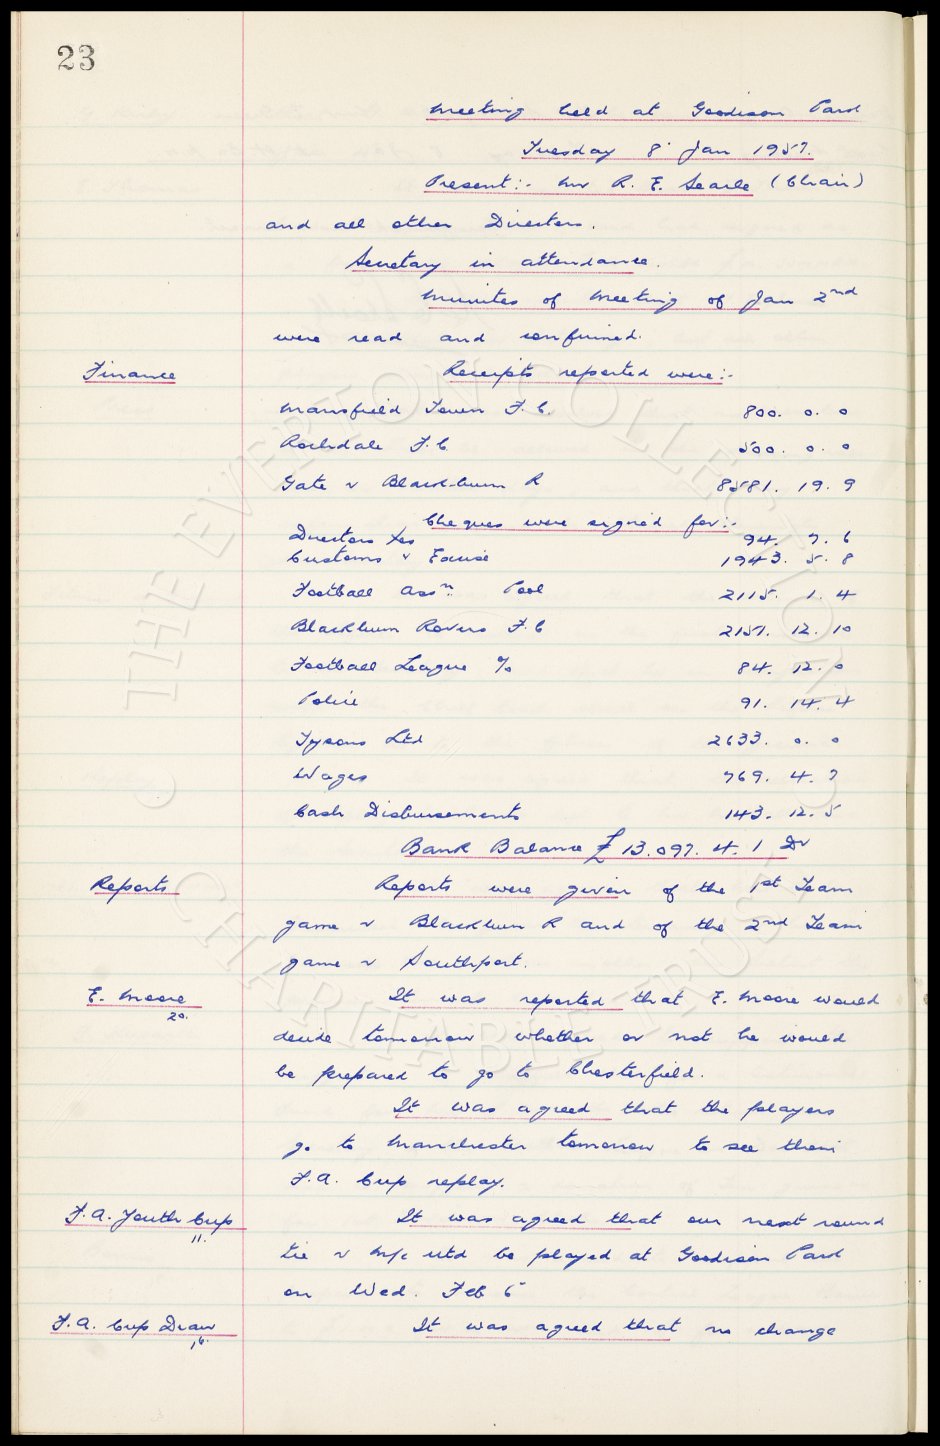 23
Meeting held at Goodison Park
Tuesday 8' Jan 1957.
Present:- Mr R. E. Searle (Chair)
and all other Directors.
Secretary in attendance.
Minutes of Meeting of Jan 2nd
were read and confirmed.
Finance Receipts reported were:-
Mansfield Town F.C. 800. 0. 0
Rochdale F.C. 500. 0. 0
Gate v Blackburn R 8581. 19. 9
Cheques were signed for:-
Directors 94. 7. 6
Customs & Excise 1943. 5. 8
Football Assn. Pool 2115. 1. 4
Blackburn Rovers F.C 2157. 12. 10
Football League % 84. 12. 0
Police 91. 14. 4
Tysons Ltd 2633. 0. 0
Wages 769. 4. 7
Cash Disbursements 143. 12. 5
Bank Balance £13.097. 4. 1 Dr
Reports Reports were given of the 1st Team
game v Blackburn R and of the 2nd Team
game v Southport.
E. Moore It was reported that E. Moore would
20.
decide tomorrow whether or not he would
be prepared to go to Chesterfield.
It was agreed that the players
go to Manchester tomorrow to see their
F.A. Cup replay.
F.A. Youth Cup It was agreed that our next round
11.
tie v M/c Utd be played at Goodison Park
on Wed. Feb 6
F.A. Cup Draw It was agreed that no change
16.
© THE EVERTON COLLECTION CHARITABLE TRUST